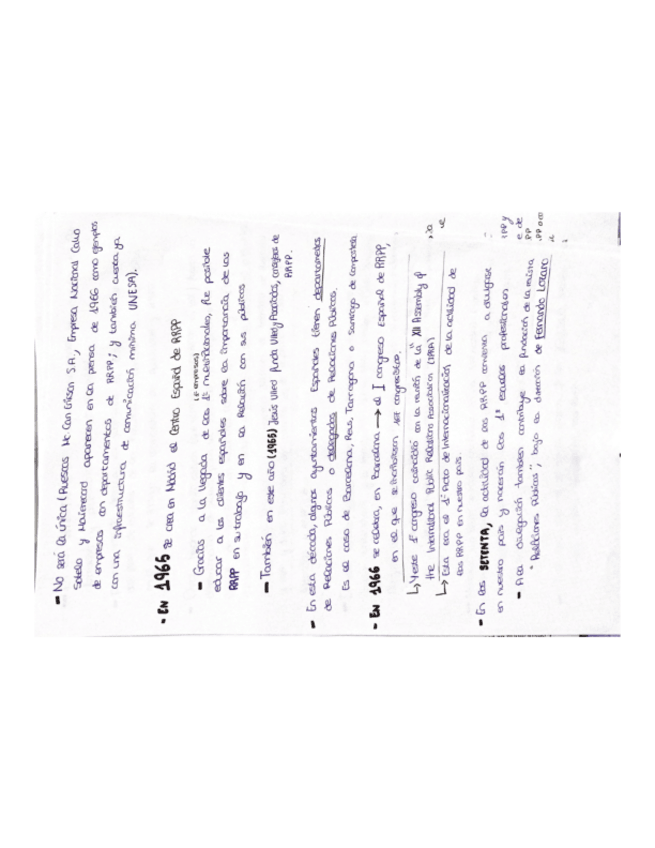 - No será la única (Ruescas Mc Cann Erikson S.A., Empresa Nacional Calvo
Sotelo y Huarte aparecen en la prensa de 1966 como ejemplos
de empresas con departamentos de RRPP; y también cuenta ya
con una infraestructura de comunicación mínima UNESA).
· EN 1965 se crea en Madrid el Centro Español de RRPP
- Gracias a la llegada de las 1ª multinacionales, (y empresas) fue posible
educar a los clientes españoles sobre la importancia de las
RRPP en su trabajo y en la relación con sus públicos
- También en este año (1965) Jesús Ulled funda Ulled y Asociados, consejeros de
RRPP.
- En esta década, algunos ayuntamientos Españoles tienen departamentos
de Relaciones Públicas o delegados de Relaciones Públicas.
Es el caso de Barcelona, Reus, Tarragona o Santiago de Compostela
- EN 1966 se celebra, en Barcelona → el I congreso Español de RRPP,
en el que se inscribieron congresistas.
↳ Y este 1º congreso coincidió con la reunión de la "XII Assembly of
the International Public Relations Association (IPRA)
↳ Este era el 1º Acto de internacionalización de la actividad de
las RRPP en nuestro país.
- En los SETENTA, la actividad de las RRPP comienza a
en nuestro país y nacerán las 1ª escuelas profesionales
- A la divulgación también contribuye la fundación de la revista
"Relaciones Públicas", bajo la dirección de Fernando Lozano